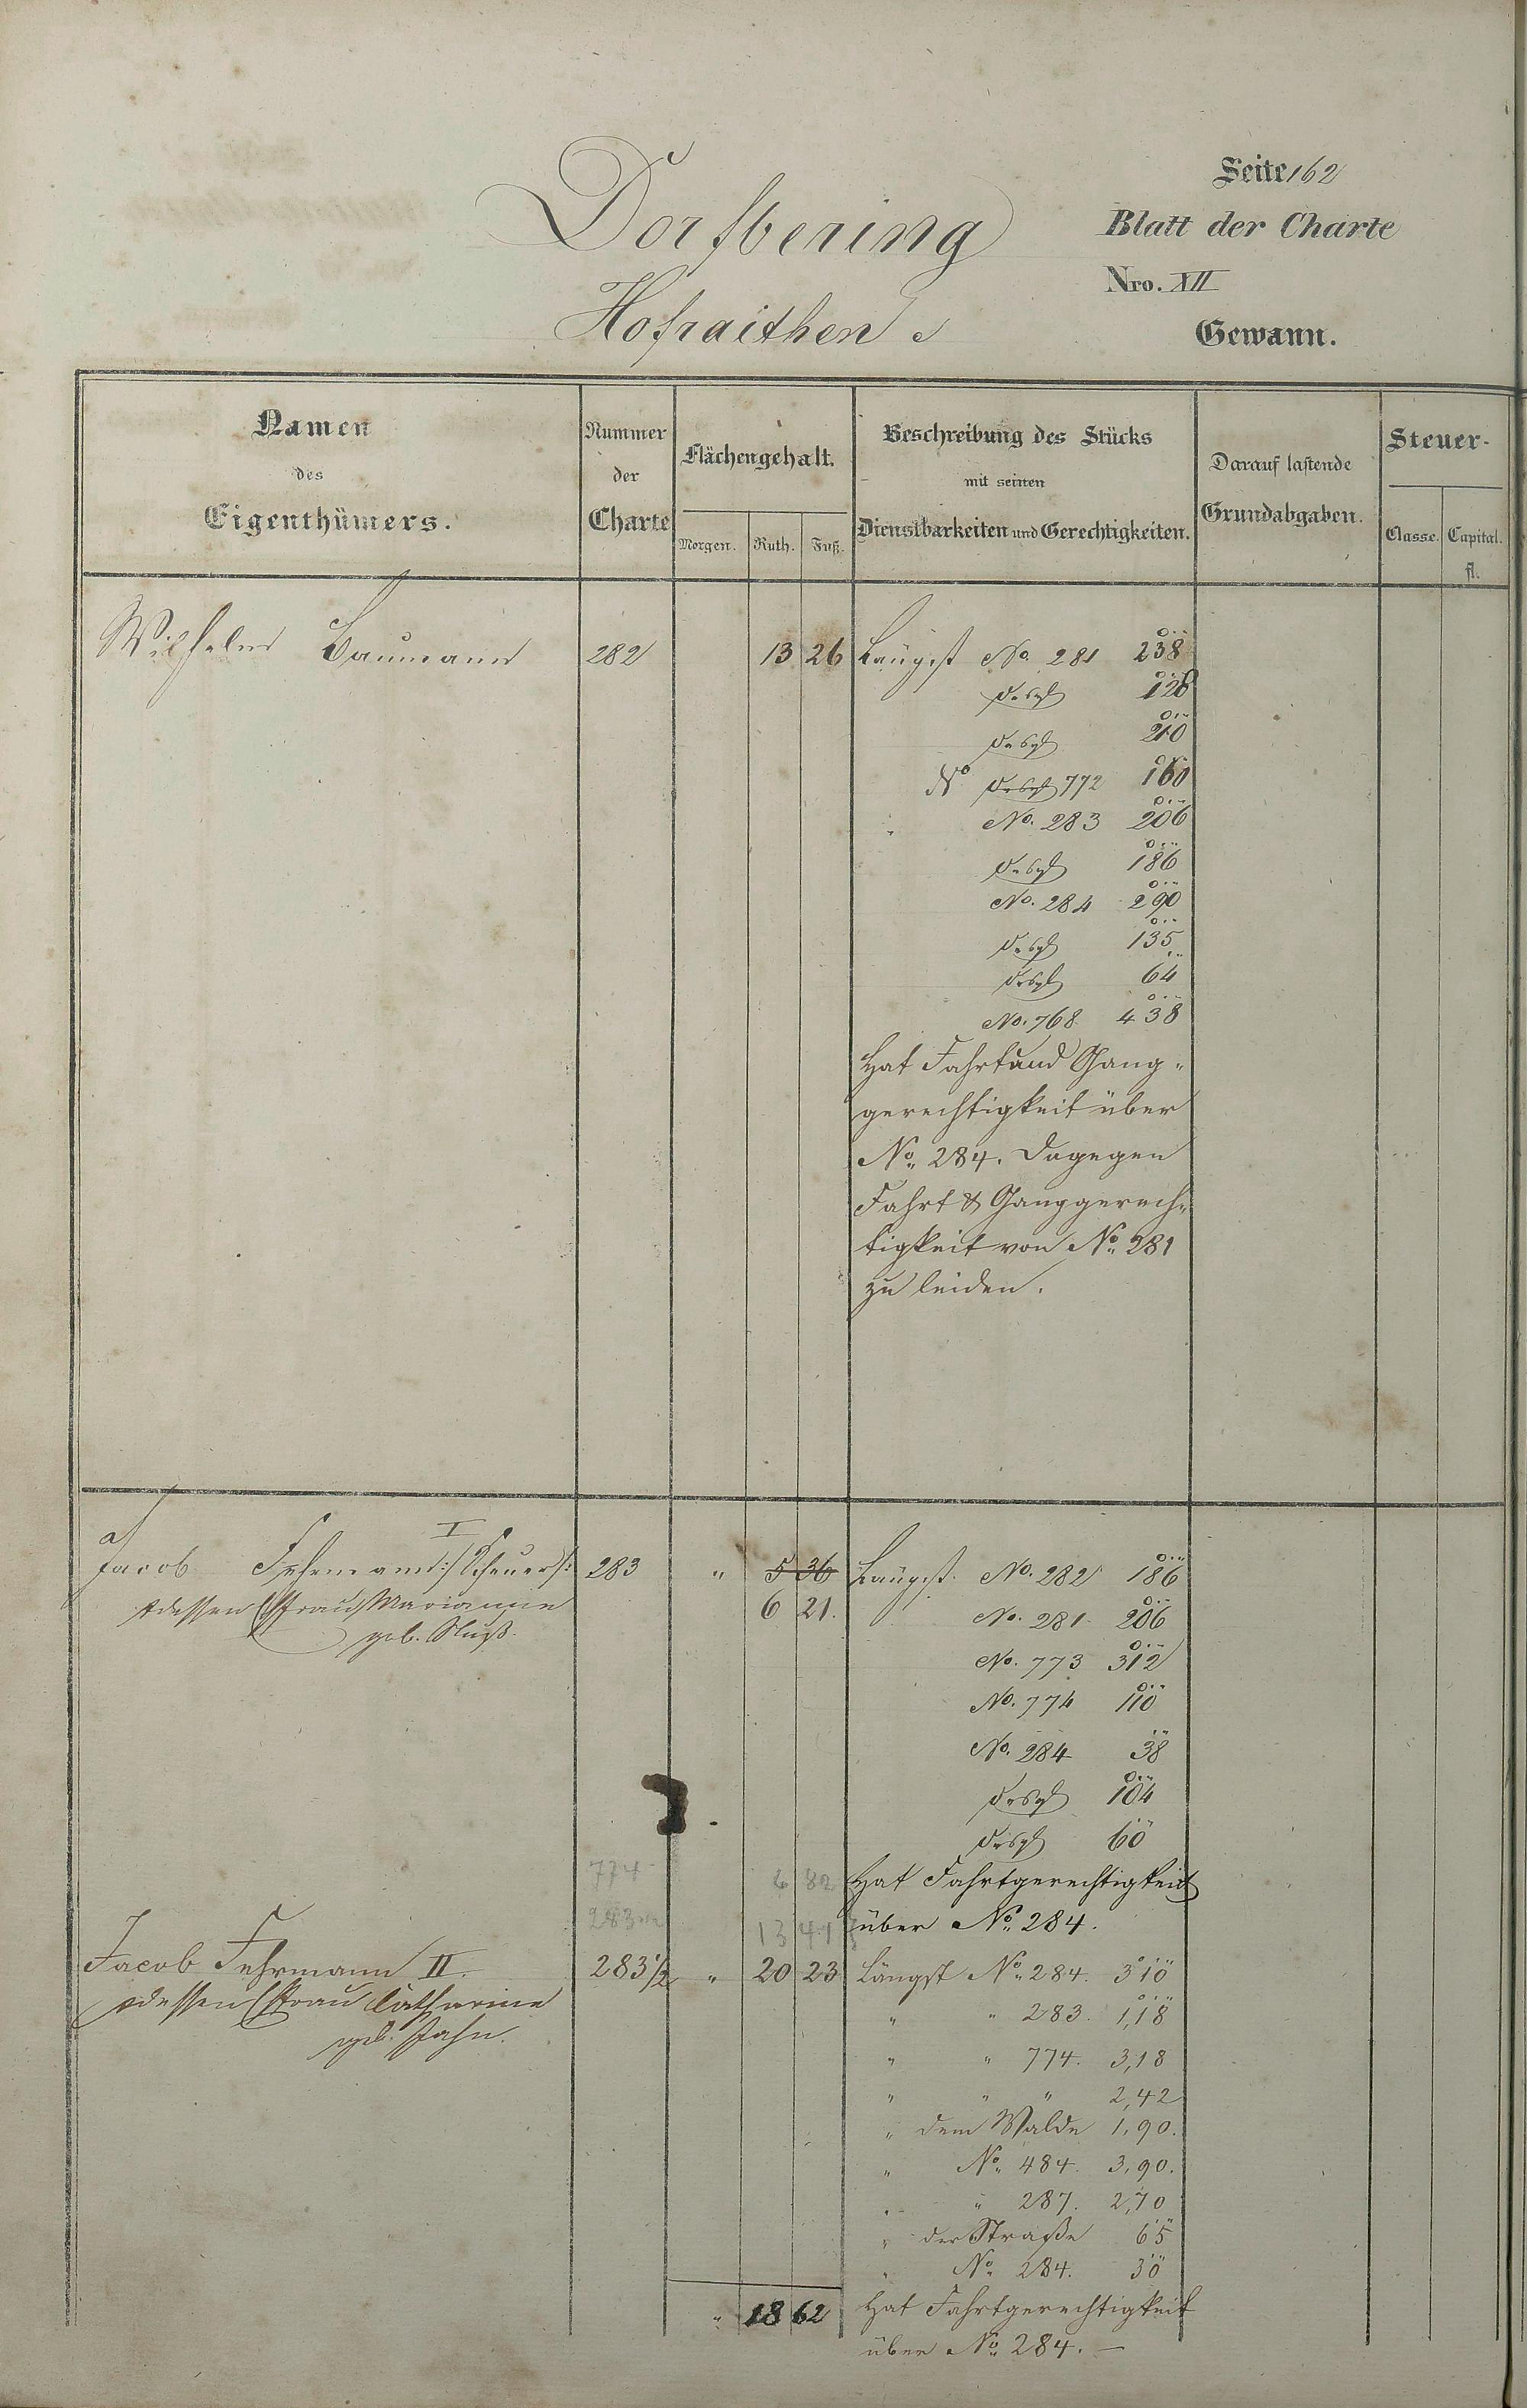 Seite 162
Dorfbering
Blatt der Charte
Nro. XII
Hofraithen
Gewann.
Namen des Eigenthümers.
Nummer der Charte
Flächengehalt.
Morgen. Ruth. Fuß.
Beschreibung des Stücks mit seinen Dienstbarkeiten und Gerechtigkeiten.
Darauf lastende Grundabgaben.
Steuer-
Classe. Capital. fl.
Wilhelm Baumann 282 13 26 Längst No. 281 238
desgl 128
desgl 210
No desgl 772 160
No. 283 206
desgl 186
No. 284 290
desgl 135
desgl 64
No. 768 438
Hat Fahrt und Gang-
gerechtigkeit über
No. 284. Dagegen
Fahrt & Ganggerech-
tigkeit von No. 281
zu leiden.
a)
Jacob Fehrmann I /:Scheuer:/ 283 " 5 36 Längst No. 282 186
dessen Ehefrau Marianne 6 21. No. 281 206
geb.
No. 773 312
No. 774 110
No. 284 38
desgl 104
desgl 60
774 6 82 Hat Fahrtgerechtigkeit
283 13 41 über No. 284.
Jacob Fehrmann II. 283 1/2 " 20 23 Längst No. 284. 310
dessen Ehefrau Catharine
geb. Jahn.
" " 283. 1,18
" " 774. 3,18
" " " 2,42
" dem Walde 1,90.
" No. 484. 3,90.
" " 287. 2,70
" der Straße 65
" No. 284. 30
" 18 62 Hat Fahrtgerechtigkeit
über No. 284. —